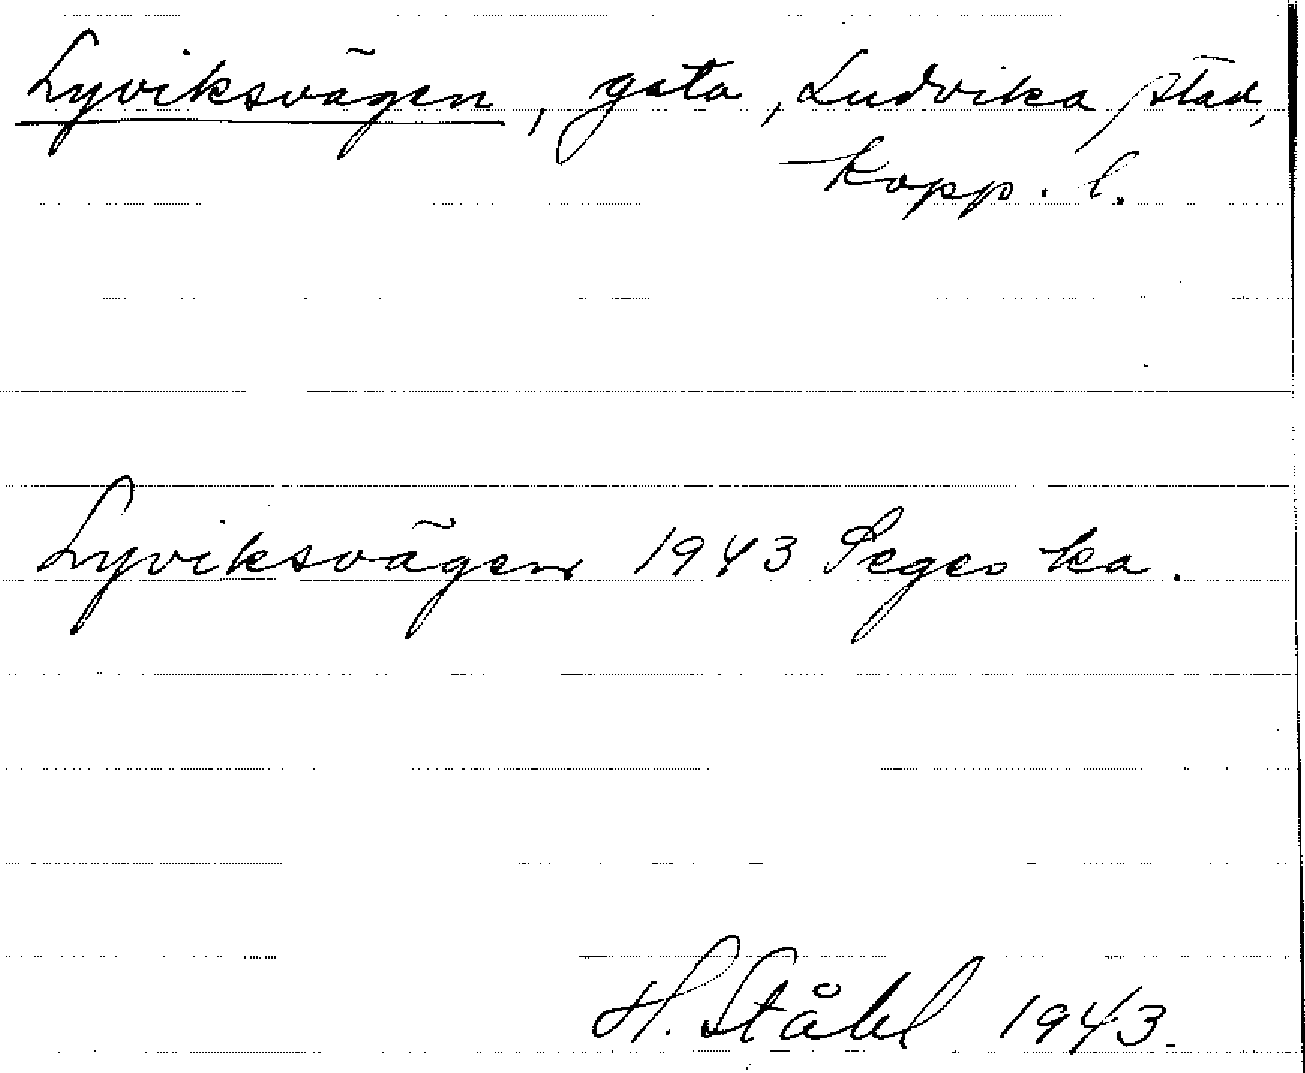 Lyviksvägen, gata, Ludvika stad,
Kopp. l.
Lyviksvägen 1943 Seges ka.
H. Ståhl 1943.